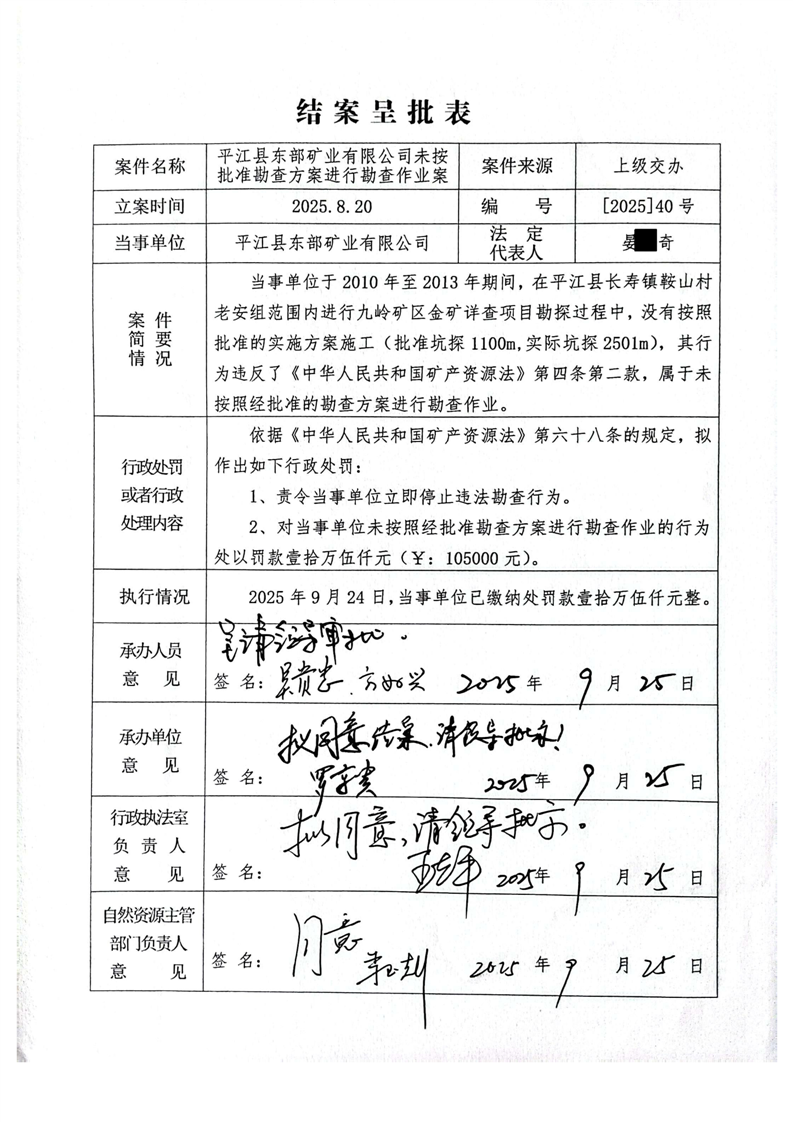 结案呈批表
案件名称
平江县东部矿业有限公司未按
批准勘查方案进行勘查作业案
案件来源
上级交办
立案时间
2025.8.20
编 号
[2025]40号
当事单位
平江县东部矿业有限公司
法 定
代表人
晏 奇
案 件
简 要
情 况
当事单位于2010年至2013年期间，在平江县长寿镇鞍山村
老安组范围内进行九岭矿区金矿详查项目勘探过程中，没有按照
批准的实施方案施工（批准坑探1100m,实际坑探2501m），其行
为违反了《中华人民共和国矿产资源法》第四条第二款，属于未
按照经批准的勘查方案进行勘查作业。
行政处罚
或者行政
处理内容
依据《中华人民共和国矿产资源法》第六十八条的规定，拟
作出如下行政处罚：
1、责令当事单位立即停止违法勘查行为。
2、对当事单位未按照经批准勘查方案进行勘查作业的行为
处以罚款壹拾万伍仟元（¥：105000元）。
执行情况
2025年9月24日,当事单位已缴纳处罚款壹拾万伍仟元整。
承办人员
意 见
呈请领导审批。
签 名：
2025年9月25日
承办单位
意 见
拟同意结案,请领导批示!
签 名：
2025年9月25日
行政执法室
负 责 人
意 见
拟同意,请领导批示。
签 名：
2025年9月25日
自然资源主管
部门负责人
意 见
同意
签 名：
2025年9月25日